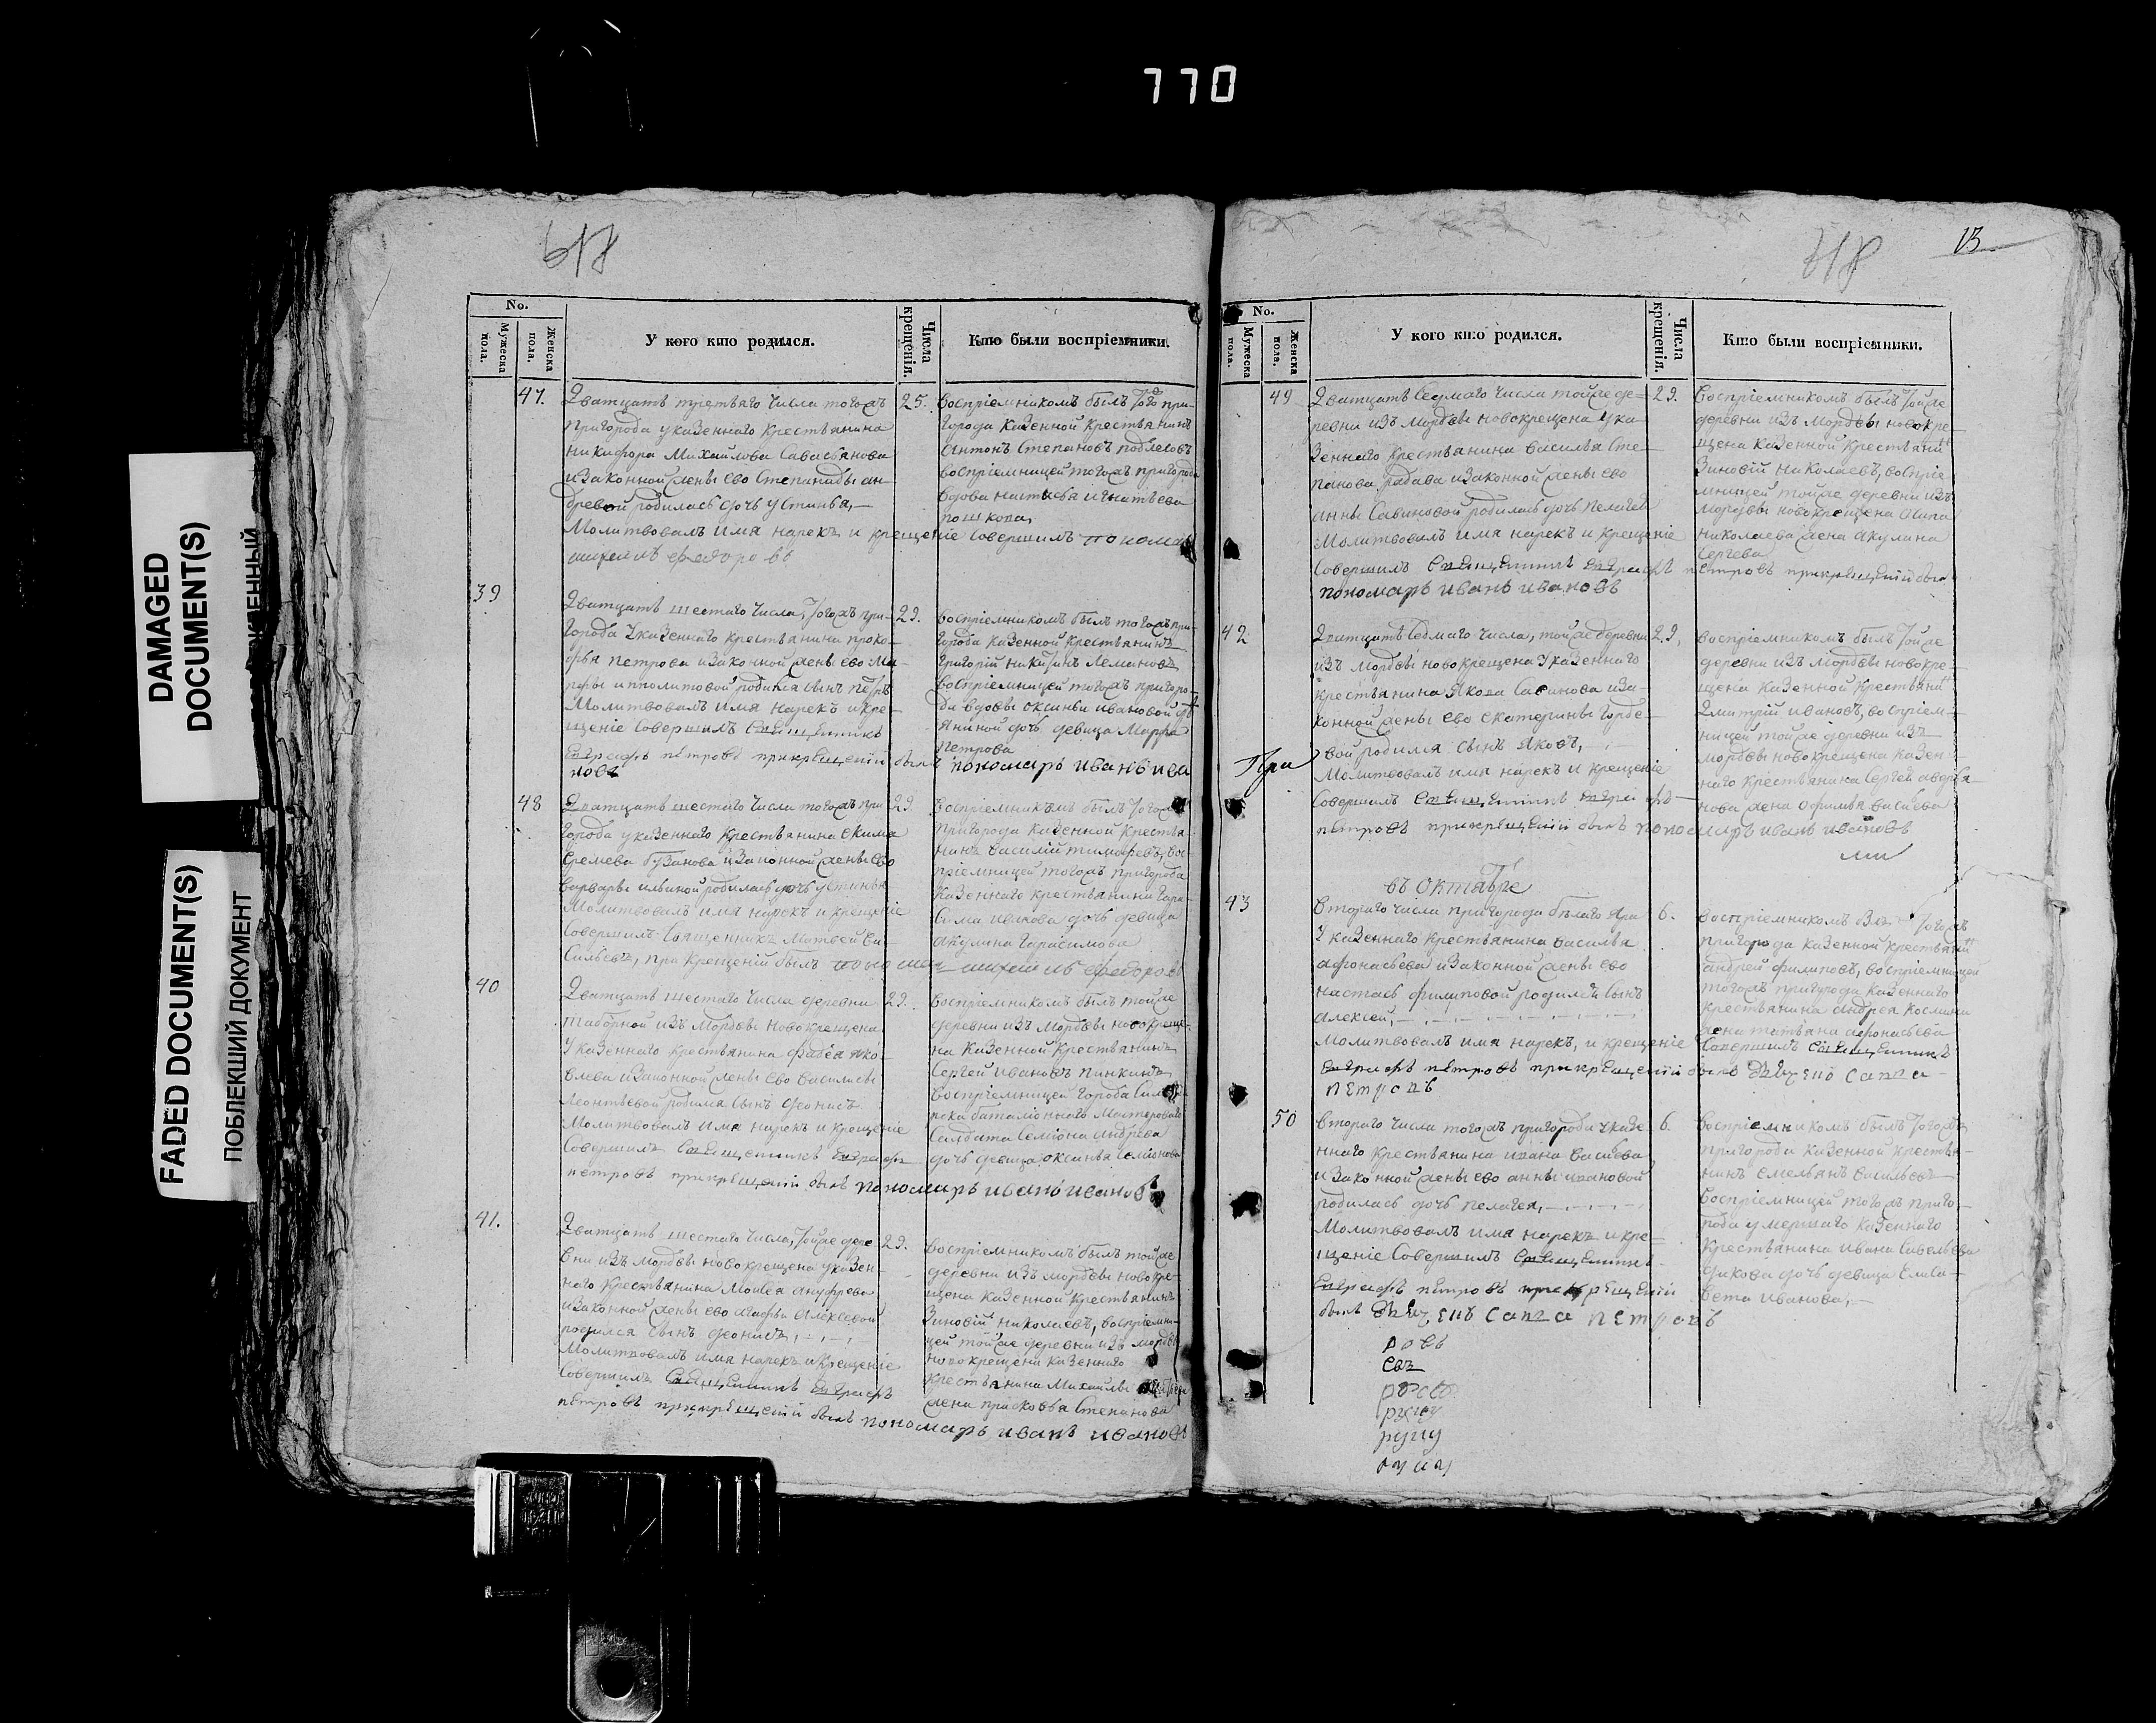 770
DAMAGED
DOCUMENT(S)
FADED DOCUMENT(S)
ПОБЛЕКШИЙ ДОКУМЕНТ
618
No.
Мужеска пола.
Женска пола.
У кого кто родился.
Числа крещенія.
Кто были воспріемники.
47.
Дватцать третьяго числа тогожъ
пригорода указеннаго крестьянина
никифора Михайлова Савастьянова
изаконной жены ево Степаниды ан-
древой родилась дочь устинья,—
Молитвовалъ имя нарекъ и крещеніе совершилъ
25.
воспріемникомъ былъ того при-
города казенной крестьянинъ
антонъ Степановъ
воспріемницей тогожъ пригорода
вдова настасья игнатьева
39
Дватцать шестаго числа, тогожъ при-
города указеннаго крестьянина проко-
фья петрова изаконной жены ево Ма-
ипполитовой родился сынъ петръ
Молитвовалъ имя нарекъ и кре-
щеніе совершилъ Священникъ
Евграфъ петровъ прикрещеніи былъ пономарь иванъ ива
новъ
29.
воспріемникомъ былъ тогожъ при-
города казенной крестьянинъ
григорій никитинъ
воспріемницей тогожъ пригоро-
да вдовы оксиньи ивановой
дочь девица Марфа
петрова
48
Дватцать шестаго числа тогожъ при
города указеннаго крестьянина екима
еремева бузанова изаконной жены ево
варвары ильиной родилась дочь устинья
Молитвовалъ имя нарекъ и крещеніе
совершилъ Священникъ Матвей Ва-
сильевъ, при крещеніи былъ
29
воспріемникомъ былъ тогожъ
пригорода казенной крестья-
нинъ василій тимофевъ, вос-
пріемницей тогожъ пригорода
казеннаго крестьянина гара-
сима дочь девица
акулина гарасимова
40
Дватцать шестаго числа деревни
таборной изъ мордвы новокрещена
указеннаго крестьянина фадея яко-
влева изаконной жены ево василисы
леонтьевой родился сынъ
Молитвовалъ имя нарекъ и крещеніе
совершилъ Священникъ Евграфъ
петровъ прикрещеніи былъ пономарь иванъ ивановъ
29.
воспріемникомъ былъ тойже
деревни изъ мордвы новокреще-
на казенной крестьянинъ
Сергей ивановъ пинкинъ
воспріемницей города
баталіоннаго мастероваго
Салдата Семіона андрева
дочь девица оксинья Семіонова
41.
Дватцать шестаго числа, тойже дере
вни изъ мордвы новокрещена указен-
наго крестьянина Моисея ануфрева
изаконной жены ево агафьи алексевой
родился сынъ
Молитвовалъ имя нарекъ и крещеніе
совершилъ Священникъ Евграфъ
петровъ прикрещеніи былъ пономарь иванъ ивановъ
29.
воспріемникомъ былъ тойже
деревни изъ мордвы новокре-
щена казенной крестьянинъ
Зиновій николаевъ, воспріемни-
цей тойже деревни изъ мордвы
новокрещена казеннаго
крестьянина Михайлы
жена прасковья Степанова
618
13
No.
Мужеска пола.
Женска пола.
У кого кто родился.
Числа крещенія.
Кто были воспріемники.
49
Дватцать седмаго числа тойже де-
ревни изъ мордвы новокрещена ука-
зеннаго крестьянина василья Сте-
панова изаконной жены ево
анны Савиновой родилась дочь пелагея
Молитвовалъ имя нарекъ и крещеніе
совершилъ Священникъ Евграфъ петровъ прикрещеніи былъ
пономарь иванъ ивановъ
29.
воспріемникомъ былъ тойже
деревни изъ мордвы новокре-
щена казенной крестьянинъ
Зиновій николаевъ, воспріе
мницей тойже деревни изъ
мордвы новокрещена осипа
николаева жена акулина
Сергева
42
Дватцать седмаго числа, тойже деревни
изъ мордвы новокрещена указеннаго
крестьянина якова Савинова иза-
конной жены ево екатерины горде-
вой родился сынъ яковъ,
При
Молитвовалъ имя нарекъ и крещеніе
совершилъ Священникъ Евграфъ
петровъ прикрещеніи былъ пономарь иванъ ивановъ
29,
воспріемникомъ былъ тойже
деревни изъ мордвы новокре-
щена казенной крестьянинъ
Дмитрій ивановъ, воспріем-
ницей тойже деревни изъ
мордвы новокрещена казен-
наго крестьянина Сергея
жена офимья васильева
въ октябре
43
втораго числа пригорода белаго яра
указеннаго крестьянина василья
афонасьева изаконной жены ево
настасьи филиповой родился сынъ
алексей,
Молитвовалъ имя нарекъ, и крещеніе совершилъ Священникъ
Евграфъ петровъ прикрещеніи былъ дьячекъ сапга
петровъ
6.
воспріемникомъ былъ тогожъ
пригорода казенной крестьянинъ
андрей филиповъ, воспріемницей
тогожъ пригорода казеннаго
крестьянина андрея космина
жена татьяна афонасьева
50
втораго числа тогожъ пригорода указе
ннаго крестьянина ивана васильева
изаконной жены ево анны ивановой
родилась дочь пелагея,
Молитвовалъ имя нарекъ и кре-
щеніе совершилъ Священникъ
Евграфъ петровъ прикрещеніи
былъ дьячекъ сапга петровъ
6.
воспріемникомъ былъ тогожъ
пригорода казенной крестья-
нинъ емельянъ васильевъ
воспріемницей тогожъ приго-
рода умершаго казеннаго
крестьянина ивана Савельева
дикова дочь девица елиса-
вета иванова,
ровъ